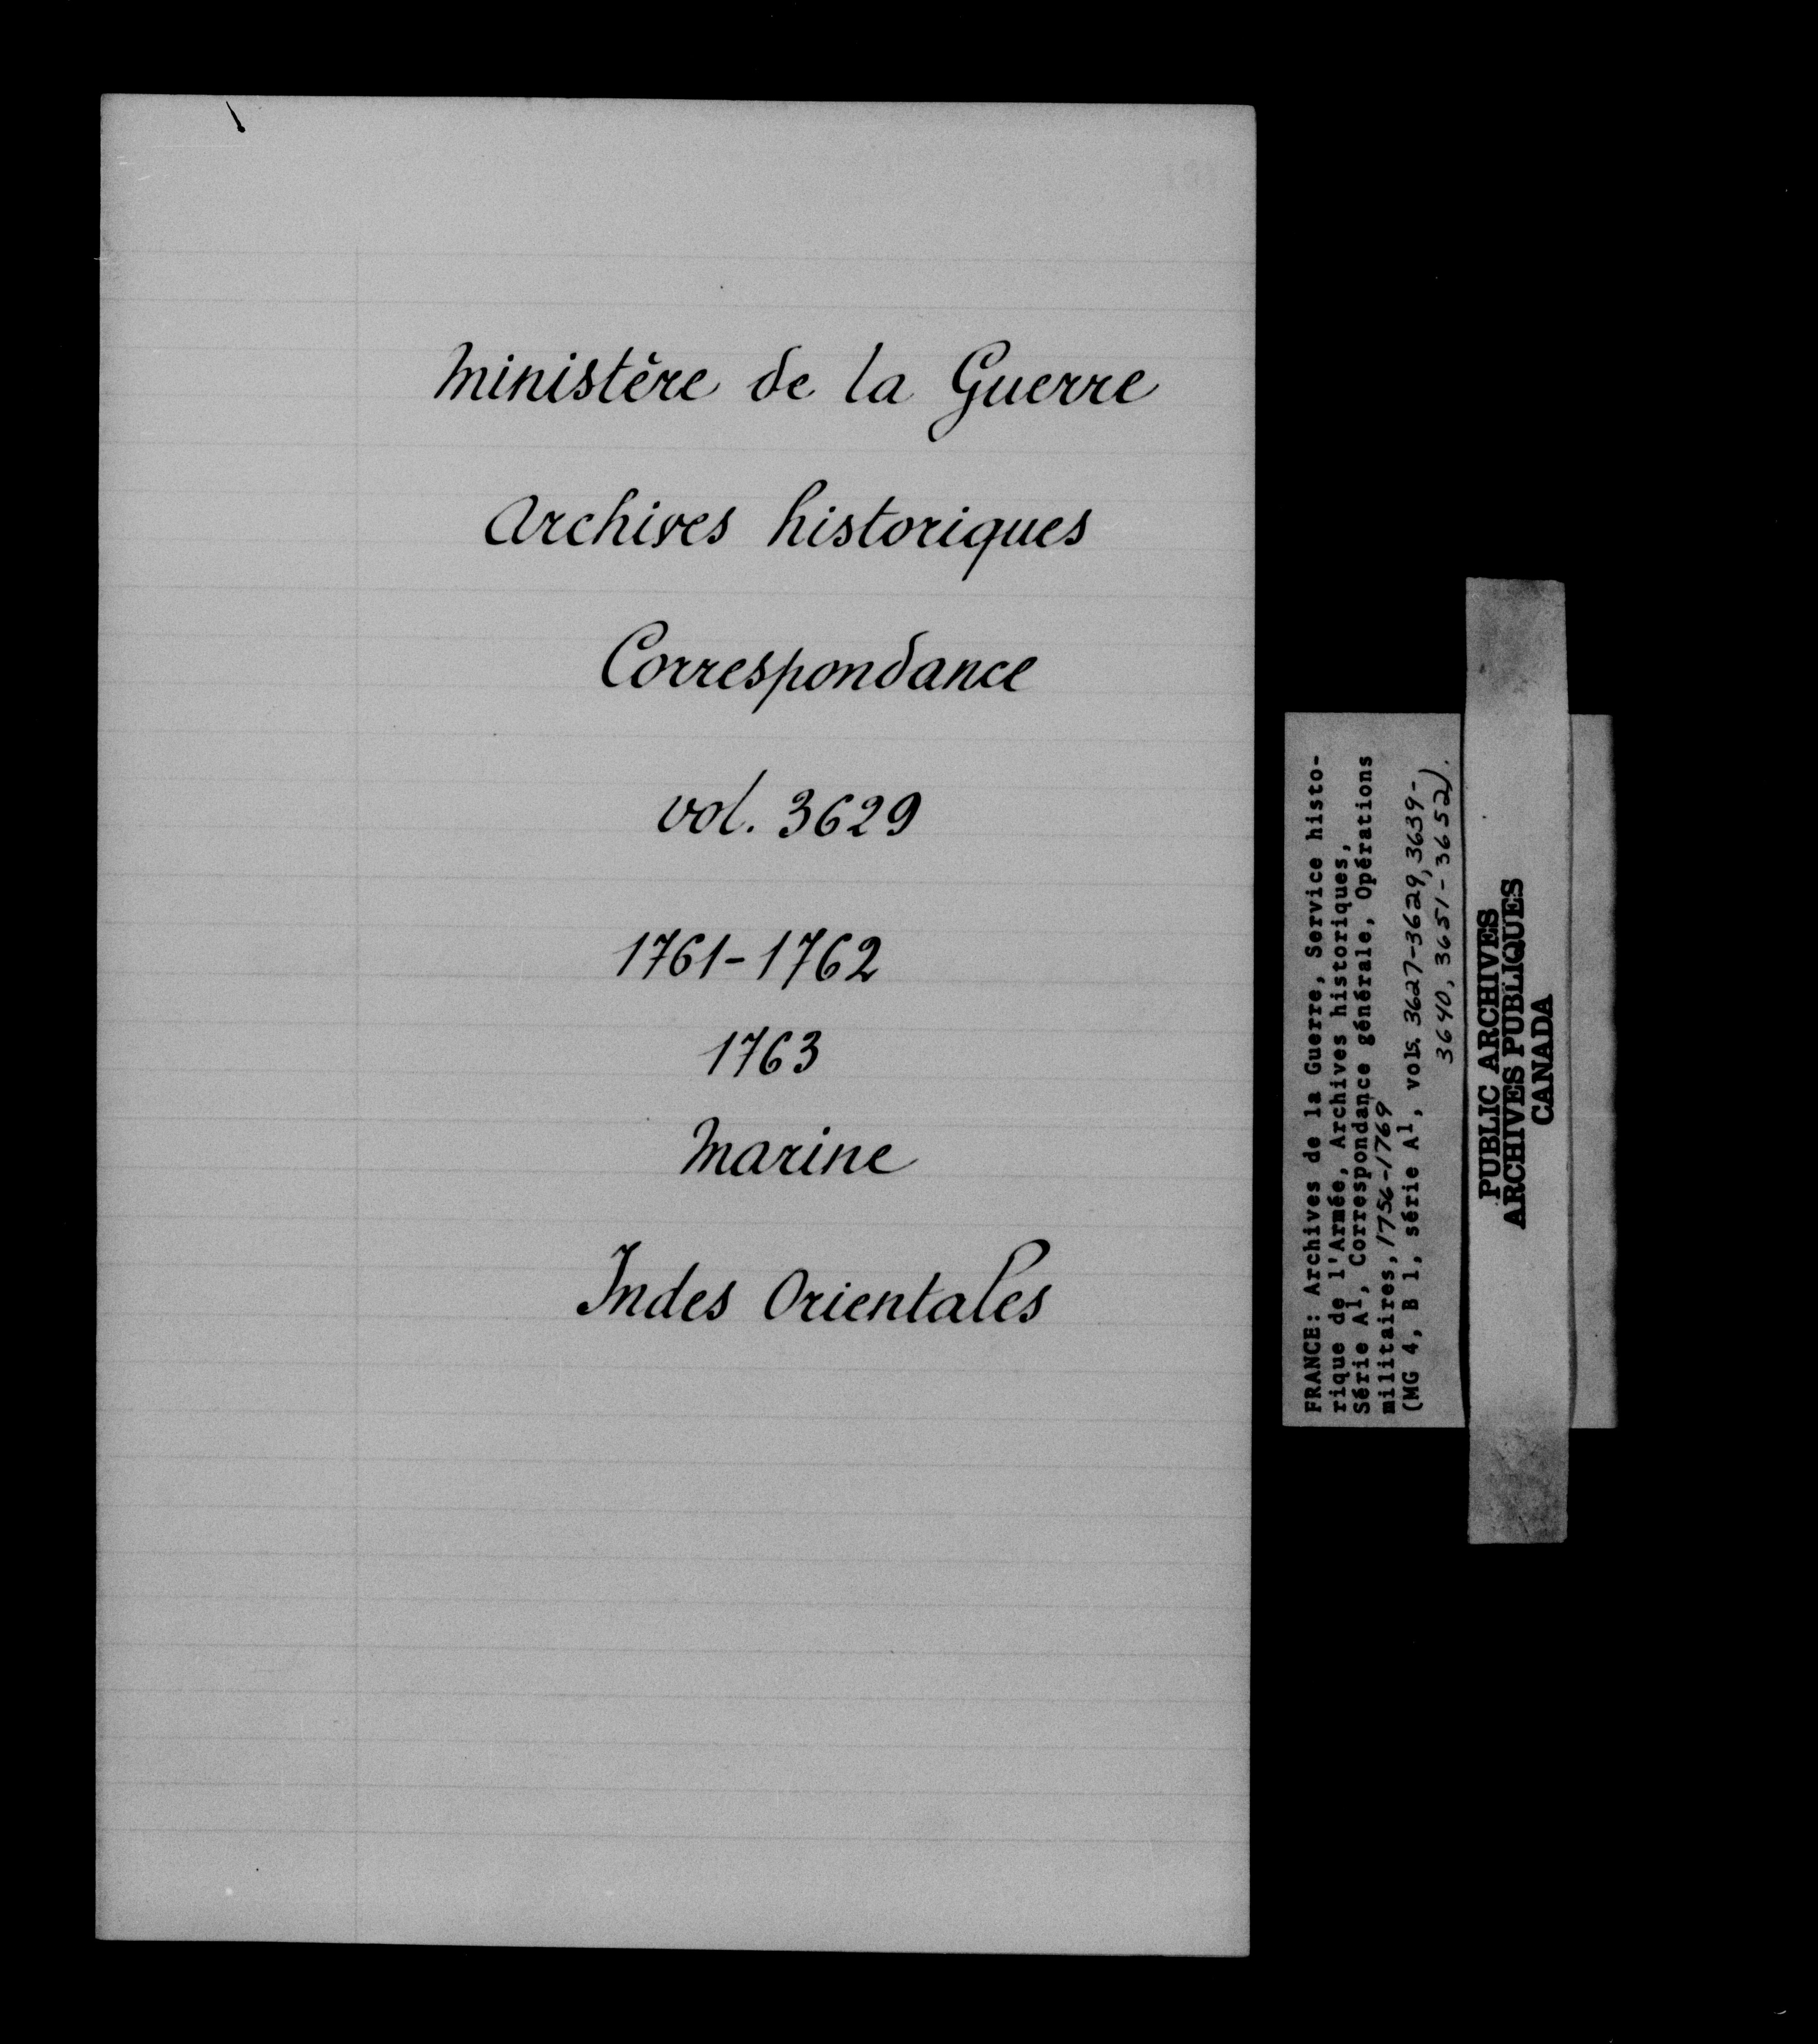 Ministère de la Guerre
Archives historiques
Correspondance
vol. 3629
1761-1762
1763
Marine
Indes Orientales
FRANCE: Archives de la Guerre, Service histo-
rique de l'Armée, Archives historiques,
Série A1, Correspondance générale, Opérations
militaires, 1756-1769
(MG 4, B 1, série A1, vols. 3627-3629, 3639-
3640, 3651-3652).
PUBLIC ARCHIVES
ARCHIVES PUBLIQUES
CANADA